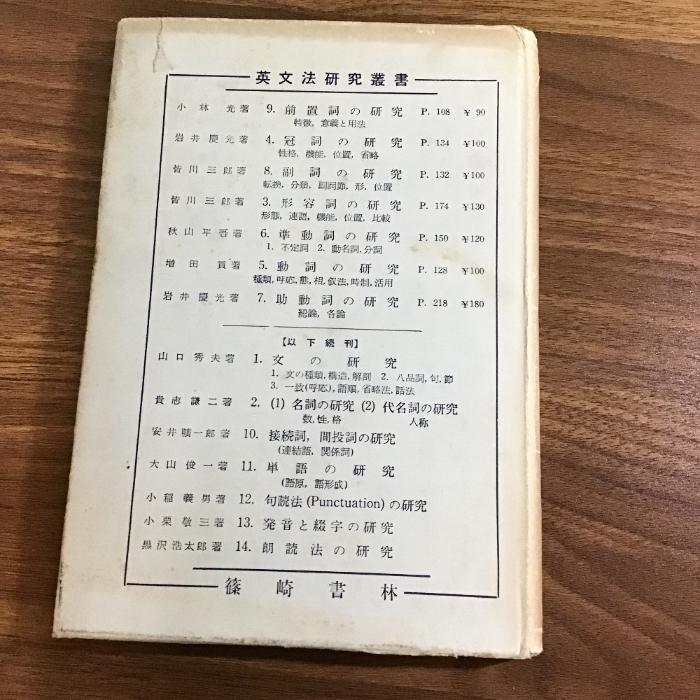 英文法研究叢書
小林 光著 9. 前置詞の研究 P. 108 ¥90
特徴, 意義と用法
岩井慶光著 4. 冠詞の研究 P. 134 ¥100
性格, 機能, 位置, 省略
皆川三郎著 8. 副詞の研究 P. 132 ¥100
転換, 分類, 副詞節, 形, 位置
皆川三郎著 3. 形容詞の研究 P. 174 ¥130
形態, 連語, 機能, 位置, 比較
秋山平吾著 6. 準動詞の研究 P. 150 ¥120
1. 不定詞 2. 動名詞, 分詞
増田 貢著 5. 動詞の研究 P. 128 ¥100
種類, 呼応, 態, 相, 叙法, 時制, 活用
岩井慶光著 7. 助動詞の研究 P. 218 ¥180
総論, 各論
【以下続刊】
山口秀夫著 1. 文の研究
1. 文の種類, 構造, 解剖 2. 八品詞, 句, 節
3. 一致(呼応), 語順, 省略法, 話法
貴志謙二著 2. (1) 名詞の研究 (2) 代名詞の研究
数, 性, 格 人称
安井 一郎著 10. 接続詞, 間投詞の研究
(連結語, 関係詞)
大山俊一著 11. 単語の研究
(語原, 語形成)
小稲義男著 12. 句読法 (Punctuation) の研究
小栗敬三著 13. 発音と綴字の研究
黒沢浩太郎著 14. 朗読法の研究
篠崎書林